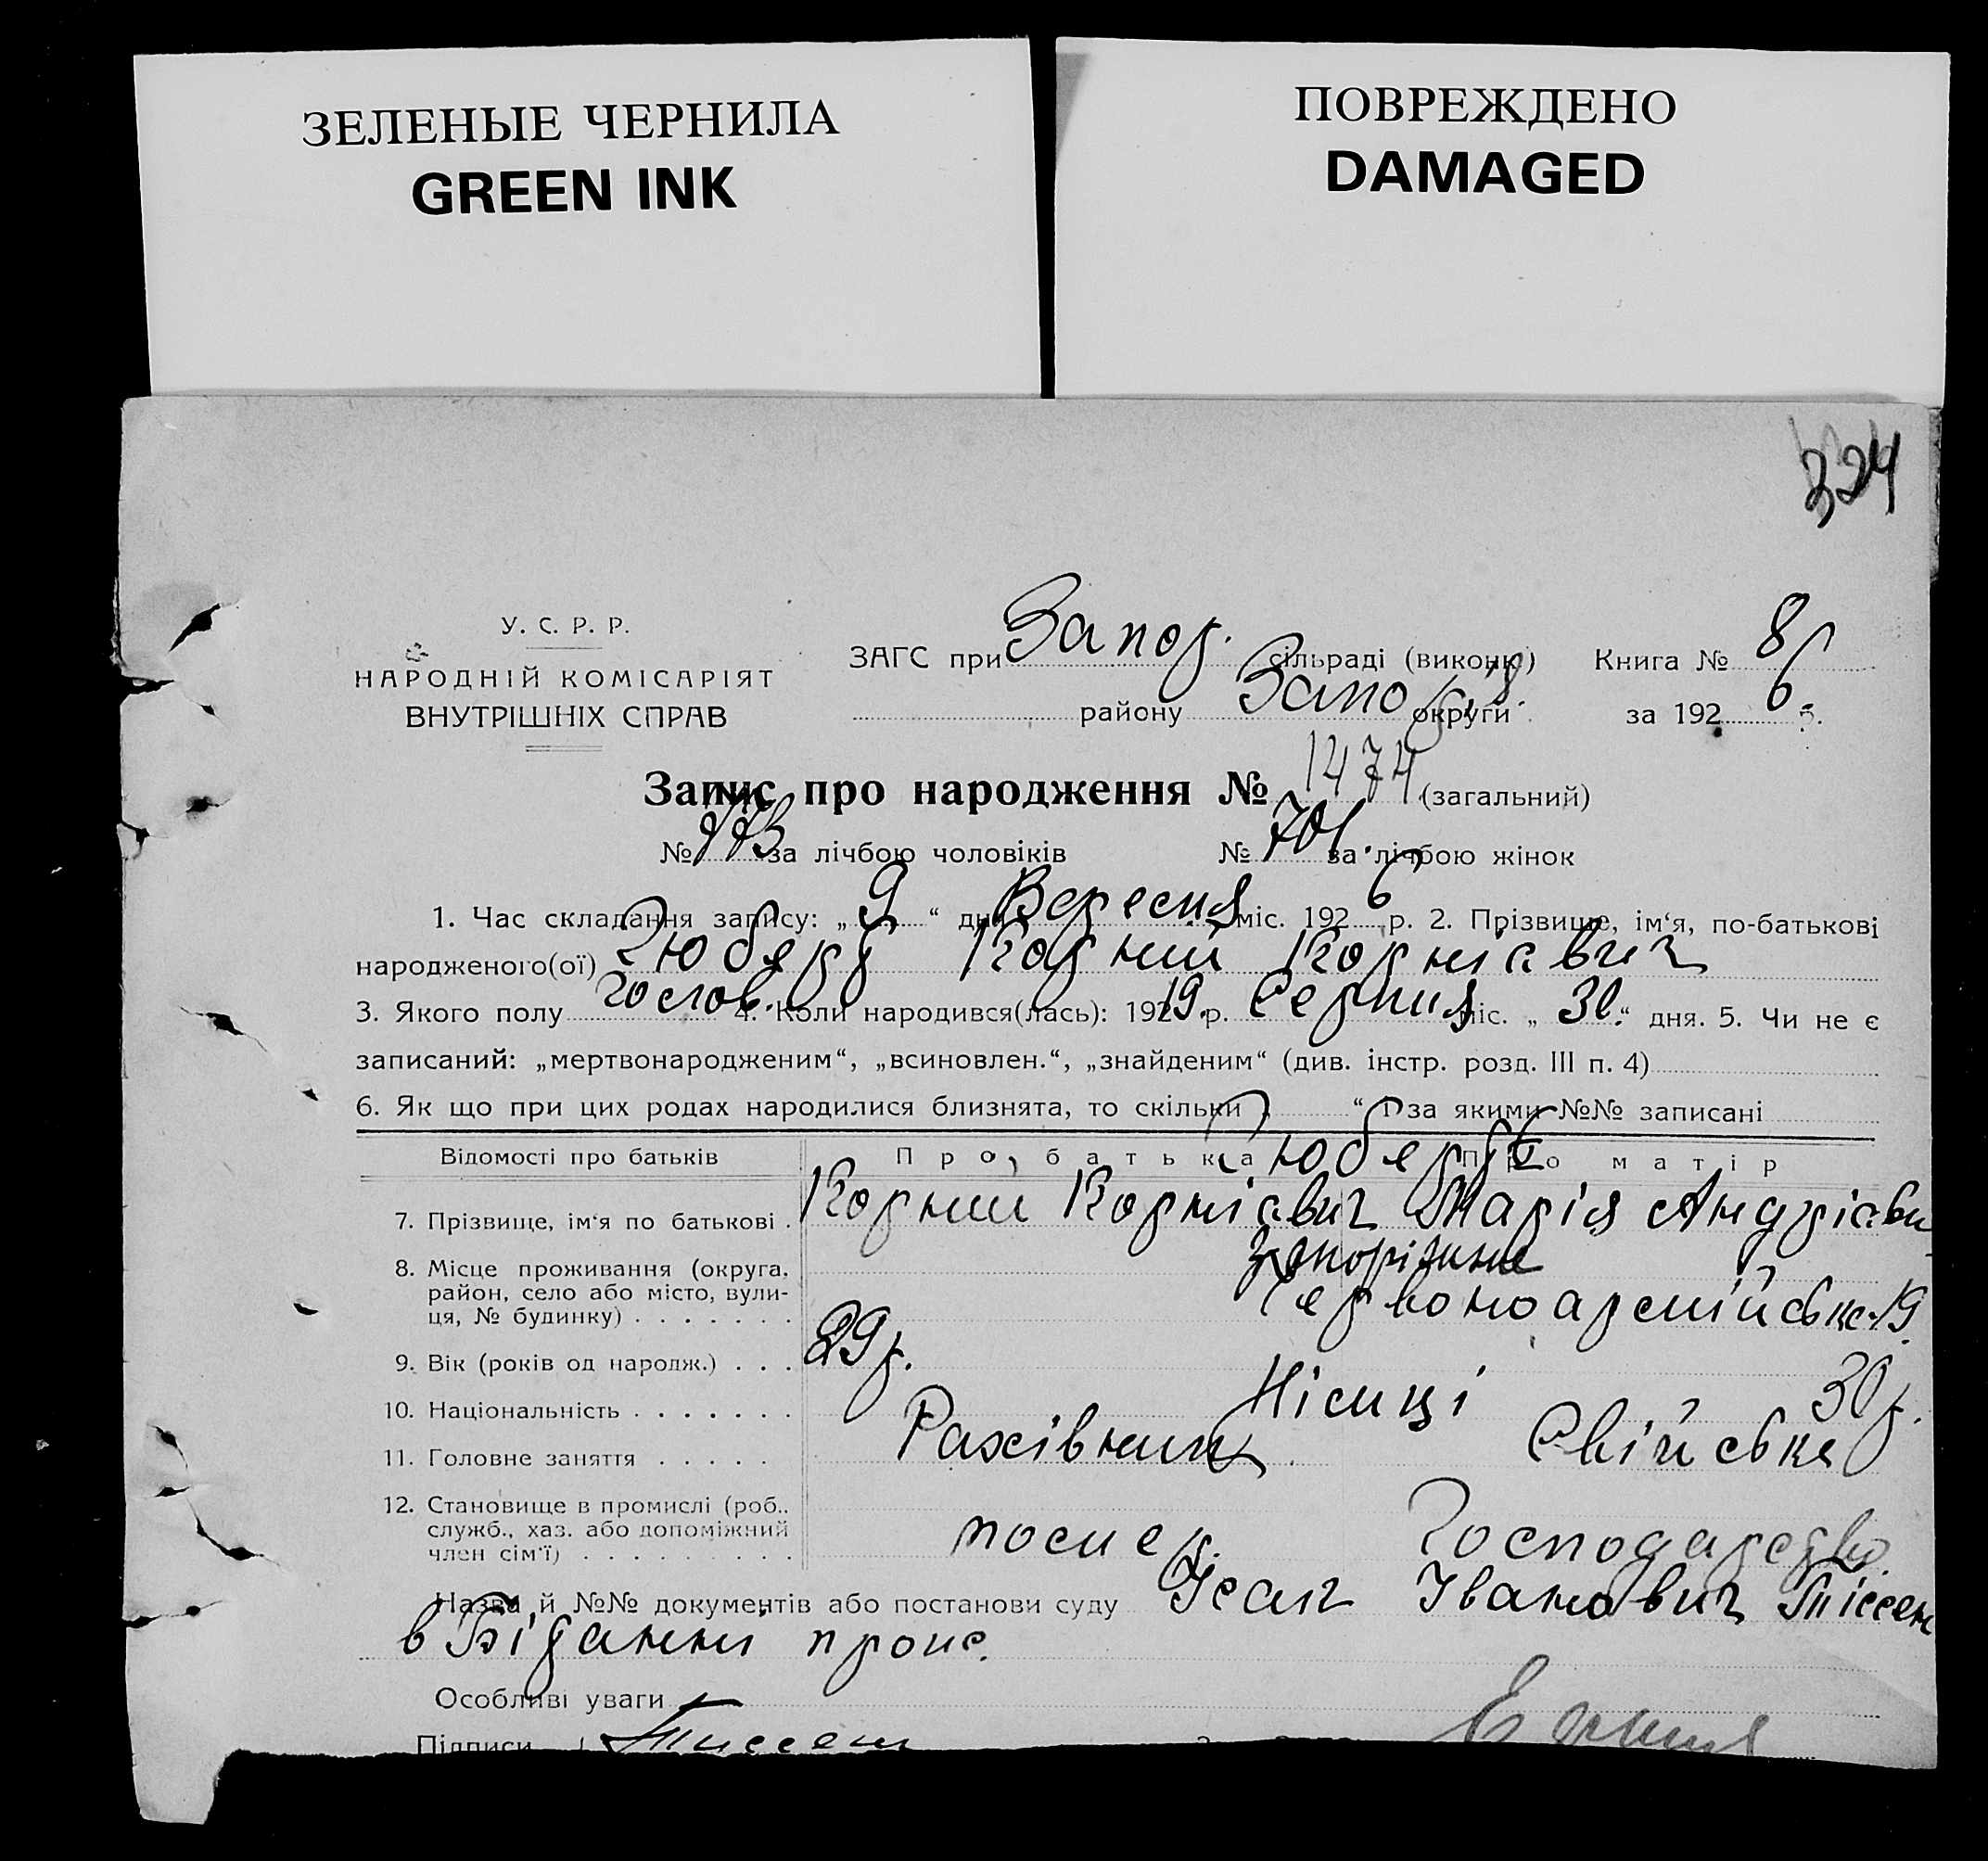 ЗЕЛЕНЫЕ ЧЕРНИЛА
GREEN INK
ПОВРЕЖДЕНО
DAMAGED
324
У. С. Р. Р.
НАРОДНІЙ КОМІСАРІЯТ
ВНУТРІШНІХ СПРАВ
ЗАГС при Запор. сільраді (виконк) Книга № 8
району Запор. округи за 1926 р.
Запис про народження № 1474 (загальний)
№ 773 за лічбою чоловіків № 701 за лічбою жінок
1. Час складання запису: „9“ дня Вересня міс. 1926 р. 2. Прізвище, ім‘я, по-батькові
народженого(ої) Гюберт Корний Корніевич
3. Якого полу чолов. 4. Коли народився(лась): 192 р. Серпня міс. „30“ дня. 5. Чи не є
записаний: „мертвонародженим“, „всиновлен.“, „знайденим“ (див. інстр. розд. III п. 4)
6. Як що при цих родах народилися близнята, то скільки „ “ і за якими №№ записані
Відомості про батьків Про батька Про матір
Гюберт
7. Прізвище, ім‘я по батькові . Корний Корніевич Марія Андріевн
8. Місце проживання (округа, район, село або місто, вулиця, № будинку) . . . . . . . Запоріжжє
Червоноармійська 19
9. Вік (років од народж.) . . . 29 р. 30 р.
10. Національність . . . . . . . Німці
11. Головне заняття . . . . . Рахівник Свійське
12. Становище в промислі (роб., служб., хаз. або допоміжний член сім‘ї) . . . . . . . . . Господарство
Назва й №№ документів або постанови суду Ісаак Іванович Тіссен
в
Особливі уваги —
Підписи Тиссен